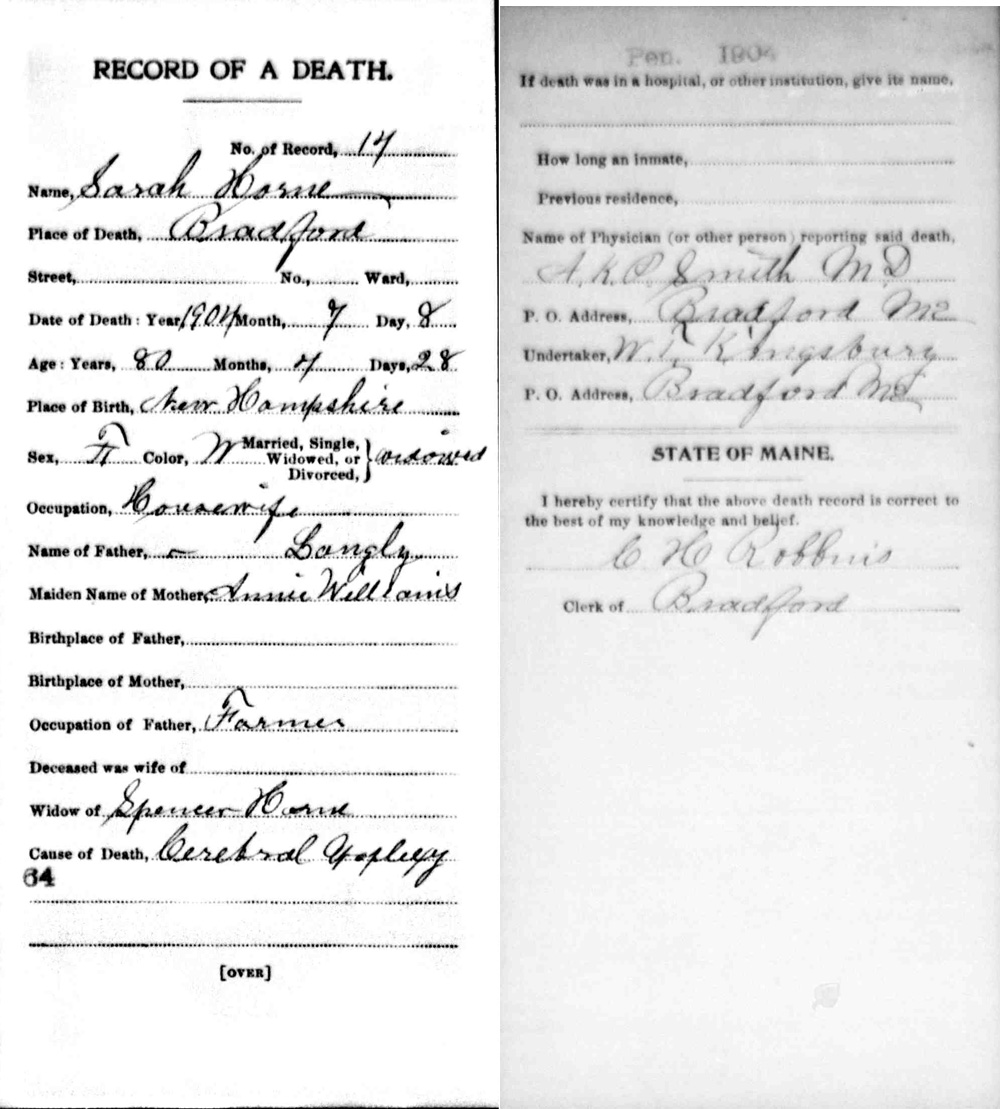 RECORD OF A DEATH.
No. of Record, 17
Name, Sarah Horne
Place of Death, Bradford
Street, No., Ward,
Date of Death: Year, 1904 Month, 7 Day, 8
Age: Years, 80 Months, 4 Days, 28
Place of Birth, New Hampshire
Sex, F Color, W Married, Single, Widowed, or Divorced, } widowed
Occupation, Housewife
Name of Father, — Langly
Maiden Name of Mother, Annie Williams
Birthplace of Father,
Birthplace of Mother,
Occupation of Father, Farmer
Deceased was wife of
Widow of Spencer Horne
Cause of Death, Cerebral
64
[OVER]
Pen. 1904
If death was in a hospital, or other institution, give its name,
How long an inmate,
Previous residence,
Name of Physician (or other person) reporting said death,
A. K. P. Smith M D
P. O. Address, Bradford Me
Undertaker, W. T. Kingsbury
P. O. Address, Bradford Me
STATE OF MAINE.
I hereby certify that the above death record is correct to
the best of my knowledge and belief.
C H Robbins
Clerk of Bradford